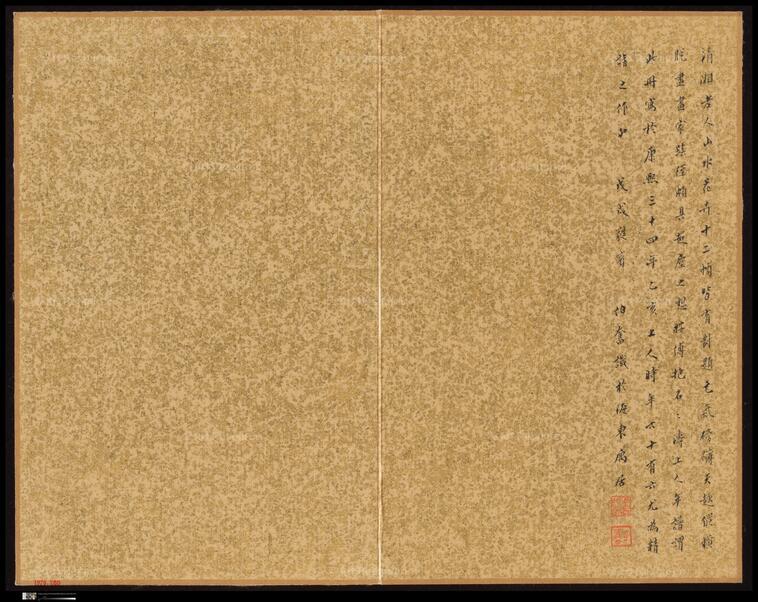 清湘老人山水花卉十二幀皆有對題元氣磅礴天趣縱橫
脫盡畫家蹊徑頗具超塵之想據傅抱石石濤上人年譜謂
此冊寫於康熙三十四年乙亥上人時年六十有六尤為精
詣之作也 戊戌 伯奮識於海東寓居